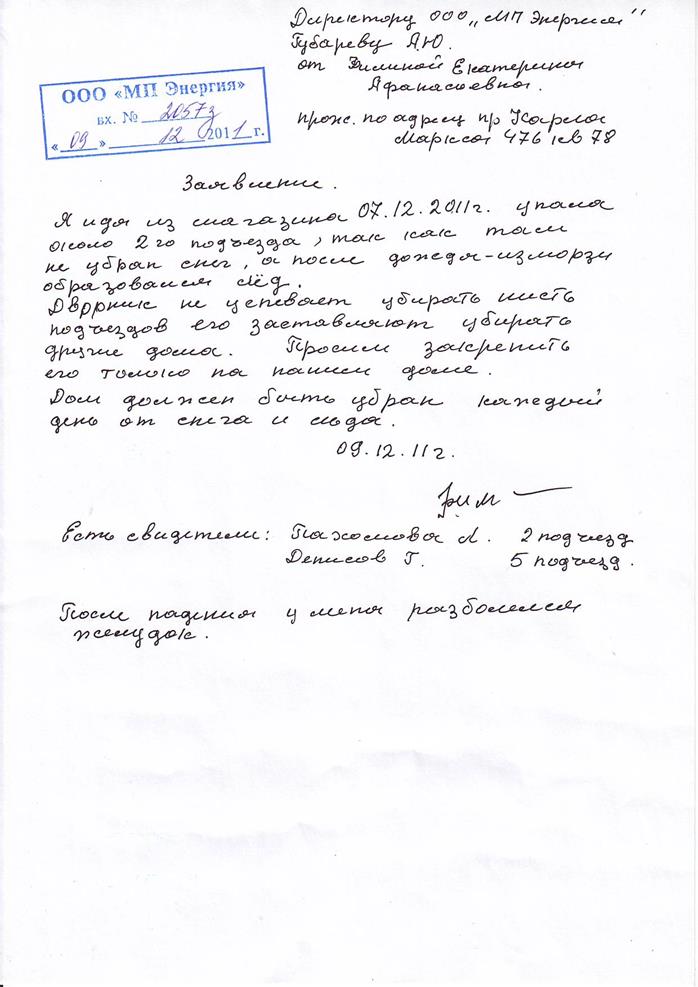 Директору ООО „МП Энергия"
Губареву А.Ю.
от Зиминой Екатерины
Афанасьевны.
прож. по адресу пр Карла
Маркса 476 кв 78
ООО «МП Энергия»
вх. № 2057з
«09» 12 2011 г.
Заявление.
Я идя из магазина 07.12.2011г. упала
около 2го подъезда, так как там
не убран снег, а после дождя-изморзи
образовался лёд.
Дворник не успевает убирать шесть
подъездов его заставляют убирать
другие дома. Просим закрепить
его только на нашем доме.
Дом должен быть убран каждый
день от снега и льда.
09.12.11г.
Есть свидетели: Пахомова Л. 2 подъезд
Денисов Г. 5 подъезд.
После падения у меня разболелся
желудок.